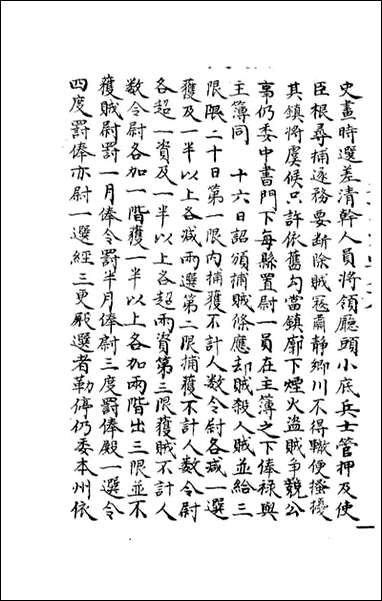 史畫時選差清幹人員將領廳頭小底兵士管押及使
臣根尋捕逐務要斷除賊寇肅靜鄉川不得輙便搔擾
其鎮將虞候只許依舊勾當鎮廓下煙火盜賊爭競公
事仍委中書門下每縣置尉一員在主簿之下俸祿與
主簿同　十六日詔頒捕賊條應却賊殺人賊並給三
限限二十日第一限内捕獲不計人數令尉各减一選
獲及一半以上各减兩選第二限捕獲不計人數令尉
各超一資及一半以上各超兩資第三限獲賊不計人
数令尉各加一階獲一半以上各加兩階出三限並不
獲賊尉罰一月俸令罰半月俸尉三度罰俸殿一選令
四度罰俸亦尉一選經三更殿選者勒停仍委本州依